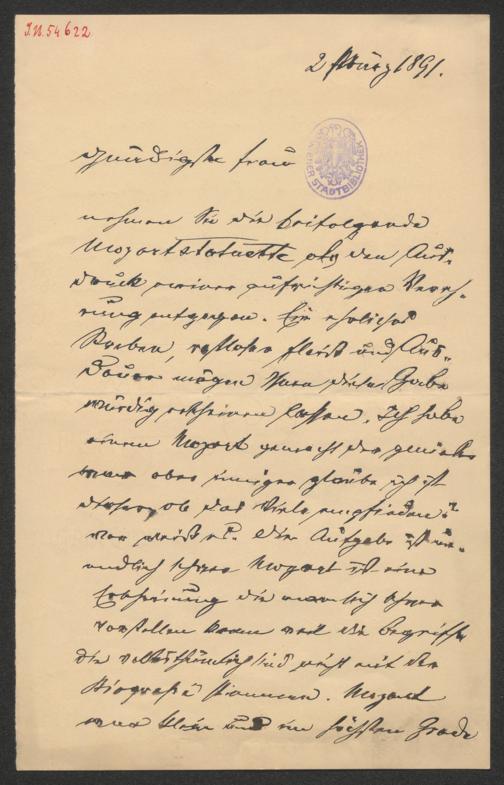 I.N. 54622
2 März 1891.
WIENER STADTBIBLIOTHEK
Gnädigste Frau
nehmen Sie die beifolgende
Mozartstatuette als den Aus-
druck meiner aufrichtigen Vereh-
rung entgegen. Ein ehrliches
Streben, rastloser Fleiß und Aus-
dauer mögen Ihnen diese Gabe
würdig erscheinen lassen. Ich habe
einen Mozart gemacht der
aber inniger glaube ich ist
dieser, ob das Viele empfinden?
wer weiß es. Die Aufgabe ist un-
endlich schwer Mozart ist eine
Erscheinung die man sich schwer
vorstellen kann weil die Begriffe
die volksthümlich sind nicht mit der
Biografie stimmen. Mozart
war klein und im höchsten Grade